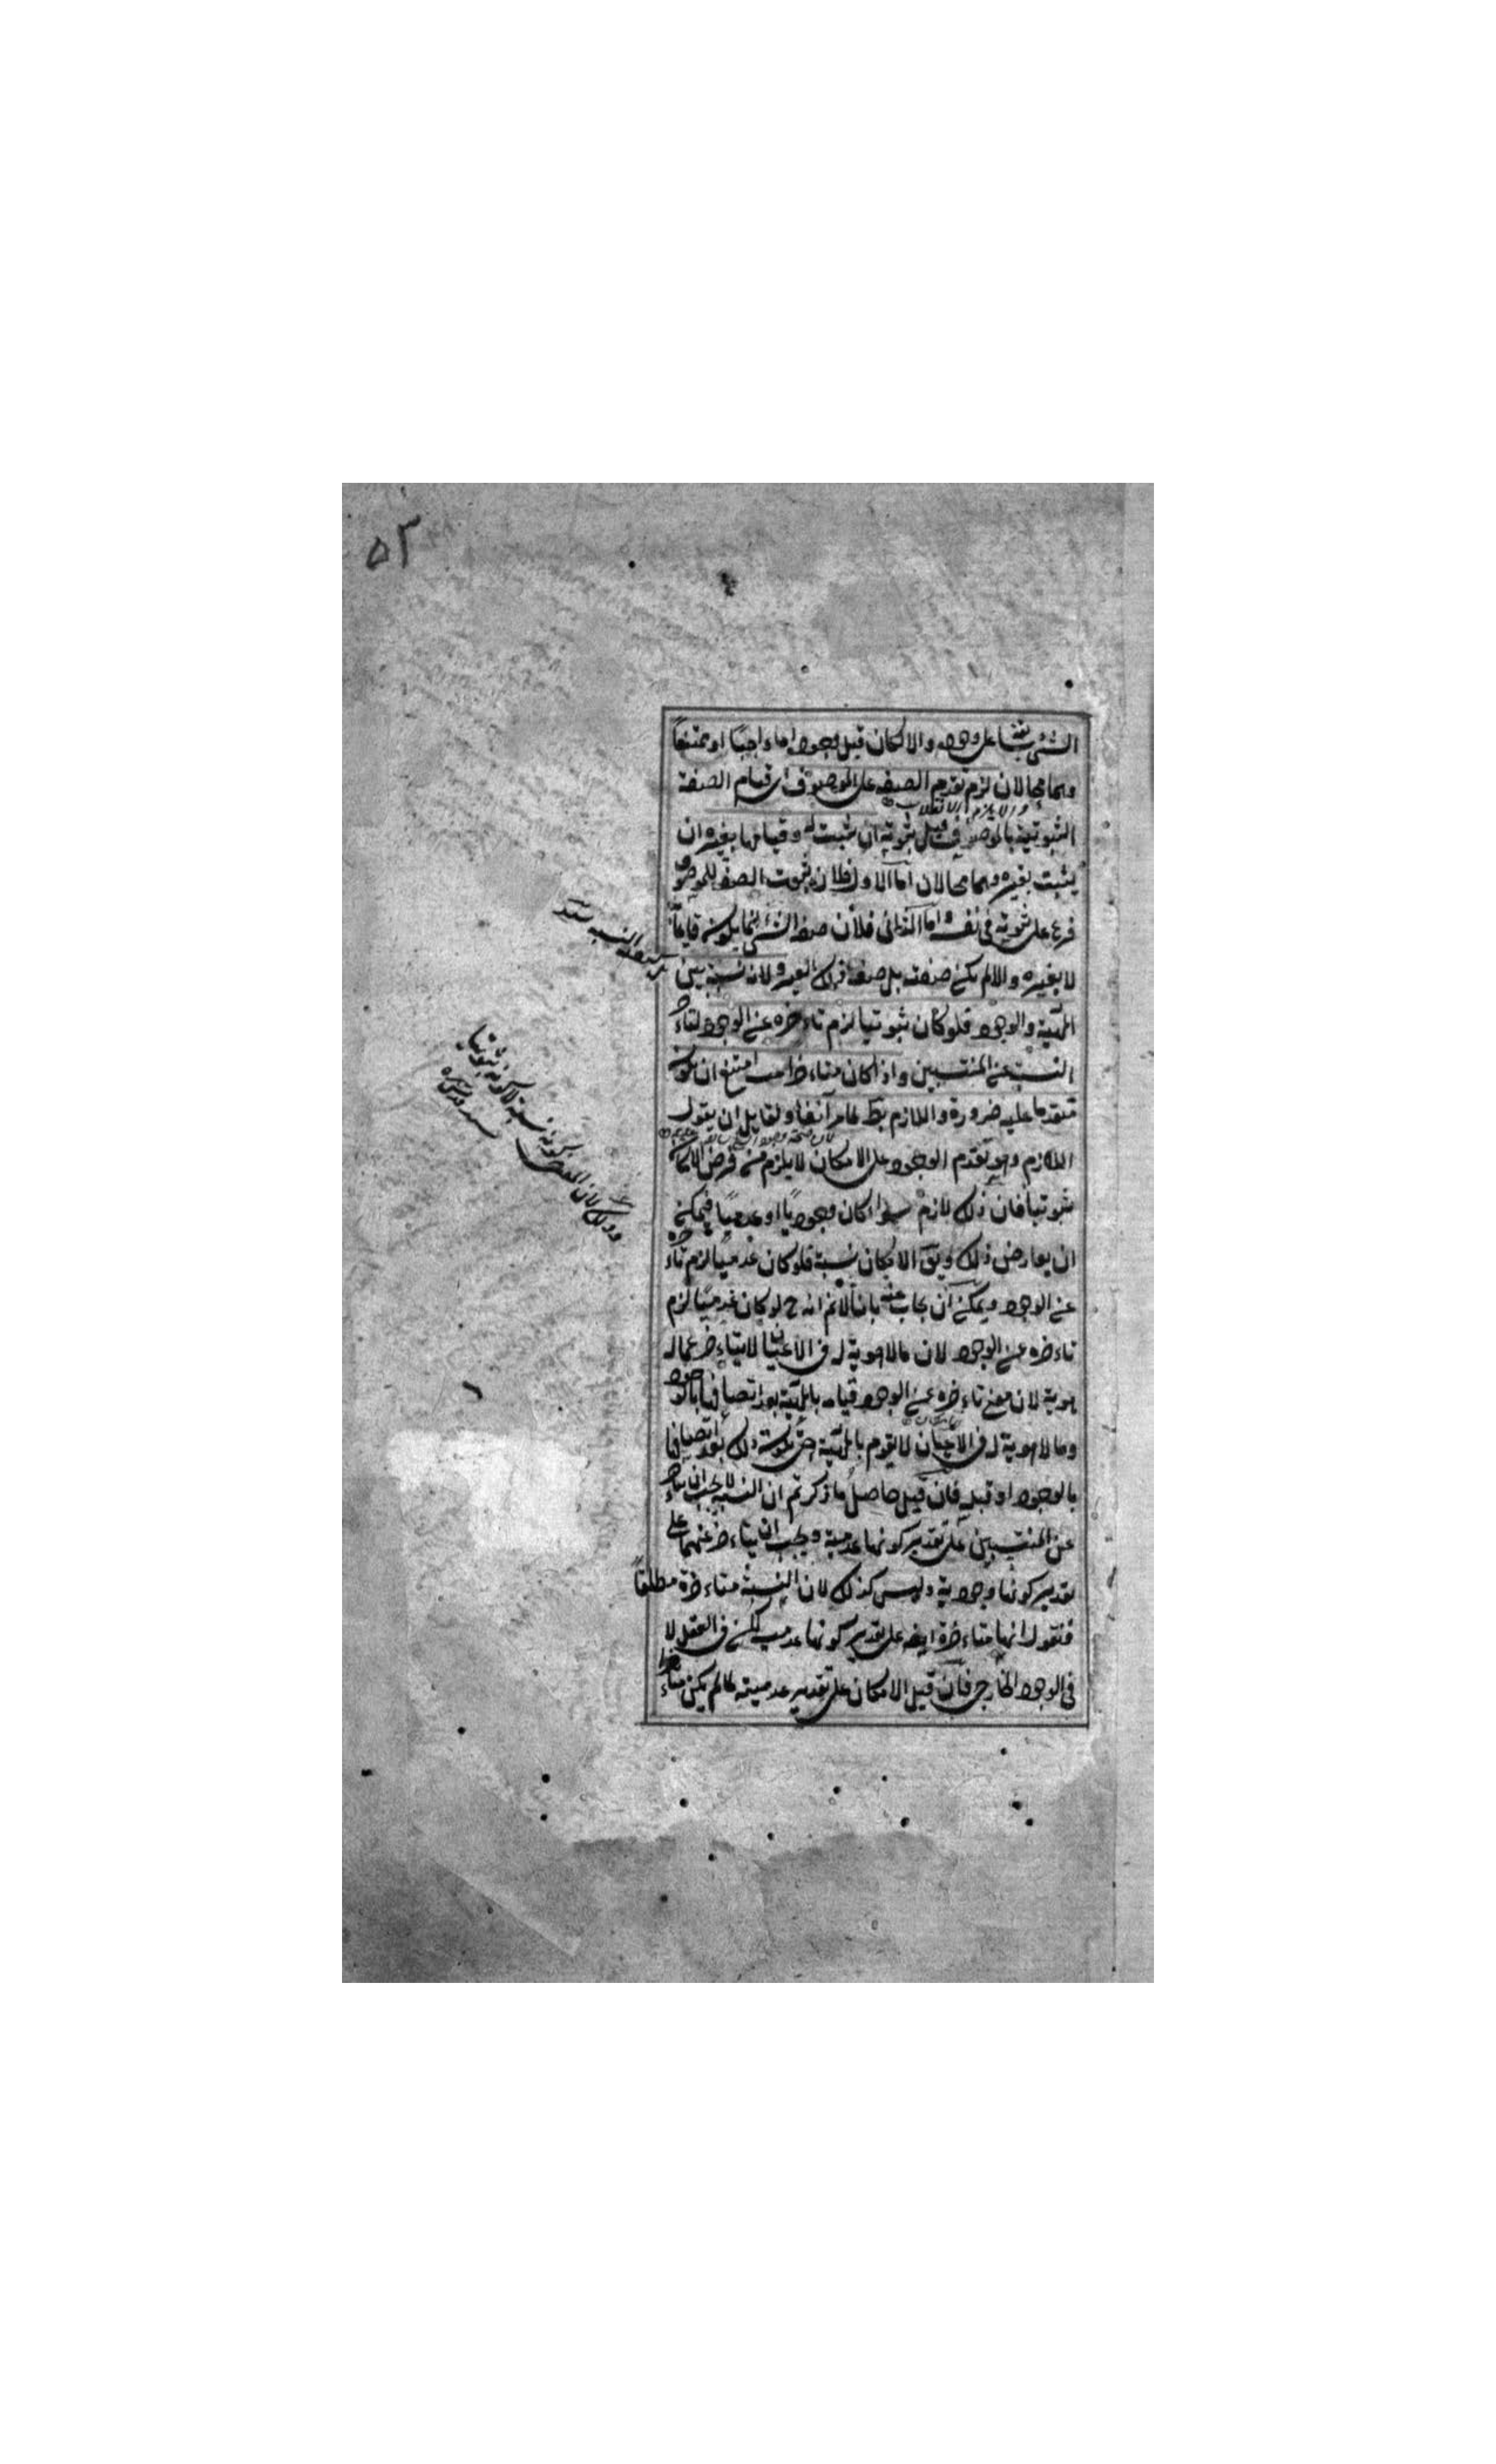 ٥٣
الشئ سابقا على وجوده والامكان قبل وجوده اما واجبًا او ممتنعًا
وهما محالان لزم تقدم الصفة على الموصوف اى قيام الصفة
والا يلزم الانقلاب
الثبوتية بالموصوف قبل ثبوته ان ثبت له وقيامها بغيره ان
يثبت بغيره وهما محالان اما الاول فلان ثبوت الصفة للموصوف
فرع على ثبوته فى نفسه واما الثانى فلأن صفة الشئ انما يكون قايمًا به
لا بغيره والا لم يكن صفته بل صفة ذلك الغير ولانه نسبة بين
المهية والوجود فلو كان ثبوتيا لزم تاءخره عن الوجود لتاءخر
النسبة عن المنتسبين واذا كان متاءخرا عنه امتنع ان يكون
متقدما عليه ضرورة واللازم بط لما مر آنفا ولقايل ان يقول
اللازم وهو تقدم الوجود على الامكان لا يلزم من فرض الامكان
ثبوتيا فان ذلك لازم سواء كان وجوديًا او عدميًا فيمكن
ان يعارض ذلك ويق الامكان نسبة فلو كان عدميًا لزم تاءخره
عن الوجود ويمكن ان يجاب عنه بانا لانم انه ح لو كان عدميًا لزم
تاءخره عن الوجود لان ما لا هوية له فى الاعيان لا يتاءخر عما له
هوية لان معنى تاءخره عن الوجود قيامه بالمهية بعد اتصافها بالوجود
وما لا هوية له فى الاعيان لا يقوم بالمهية حتى يكون ذلك بعد اتصافها
بالوجود او قبله فان قيل حاصل ما ذكرتم ان النسبة لا يجب ان يتاءخر
عن المنتسبين على تقدير كونها عدمية ويجب ان يتاءخر عنهما على
تقدير كونها وجودية وليس كذلك لان النسبة متاءخرة مطلقًا
فنقول انها متاءخرة ايضا على تقدير كونها عدمية لكن فى العقل لا
فى الوجود الخارجى فان قيل الامكان على تقدير عدميته لما لم يكن متاءخرا